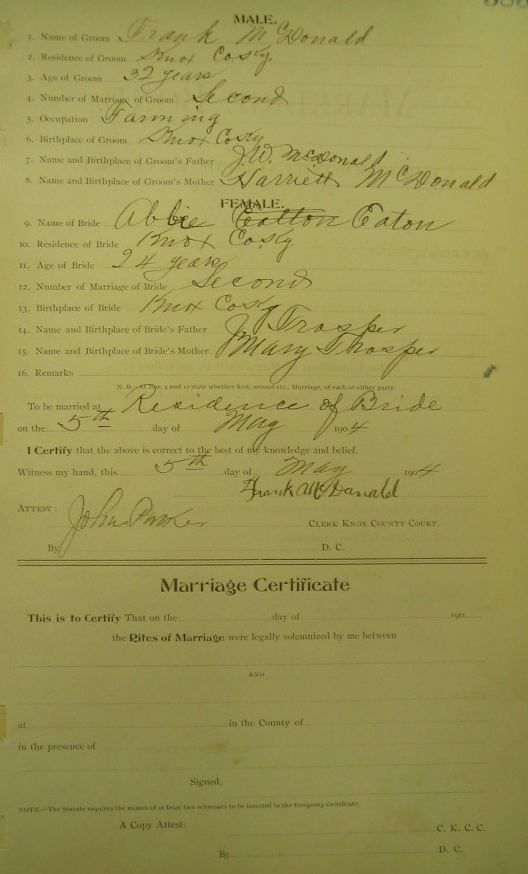 MALE.
1. Name of Groom Frank McDonald
2. Residence of Groom Knox Co Ky.
3. Age of Groom 32 years
4. Number of Marriage of Groom Second
5. Occupation Farming
6. Birthplace of Groom Knox Co Ky
7. Name and Birthplace of Groom's Father J.W. McDonald
8. Name and Birthplace of Groom's Mother Harriett McDonald
FEMALE.
9. Name of Bride Abbie Eatton Eaton
10. Residence of Bride Knox Co Ky.
11. Age of Bride 24 years
12. Number of Marriage of Bride Second
13. Birthplace of Bride Knox Co Ky
14. Name and Birthplace of Bride's Father J Trosper
15. Name and Birthplace of Bride's Mother Mary Trosper
16. Remarks
N. B.—At Nos. 4 and 12 state whether first, second etc., Marriage, of each or either party.
To be married at Residence of Bride
on the 5th day of May 1904
I Certify that the above is correct to the best of my knowledge and belief.
Witness my hand, this 5th day of May 1904
Frank McDanald
ATTEST: John Parker CLERK KNOX COUNTY COURT.
By D. C.
Marriage Certificate
This is to Certify That on the day of 190
the Rites of Marriage were legally solemnized by me between
AND
at in the County of
in the presence of
Signed,
NOTE.—The Statute requires the names of at least two witnesses to be inserted in the foregoing Certificate.
A Copy Attest: C. K. C. C.
By D. C.